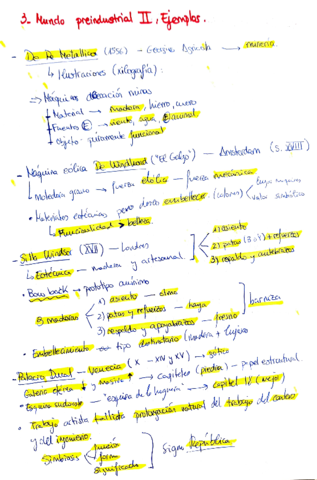 3. Mundo preindustrial II, Ejemplos.
- De Re Metallica (1556) - Georgius Agricola → minería
↳ Ilustraciones (xilografía):
⇒ Máquinas creación minas
Material → madera, hierro, cuero
Fuentes E → viento, agua, E animal
Objeto puramente funcional
- Máquina eólica De Windhond ("El Galgo") - Amsterdam (S. XVIII)
Molería grano → fuerza eólica - fuerza mecánica
Materiales estéticos, pero desea embellecer (colores) lugar
valor simbólico
↳ Funcionalidad > belleza
- Silla Windsor (XVII) - Londres
↳ Ecotécnica - madera y artesanal
1) asiento
2) patas (3 o 4) + refuerzos
3) respaldo y
- Bow back → prototipo anónimo
3 maderas
1) asiento - olmo
2) patas y refuerzos - haya
3) respaldo y apoyabrazos - fresno
barniza
- Embellecimiento → tipo destinatario (madera + lujoso
- Palacio Ducal - Venecia (X - XIV y XV) → gótico
Galería esférica ↓ y masiva ↑ → capiteles (piedra) - papel estructural
- Esquina redonda - "esquina de la higuera" → capitel 12 (mejor)
- Trabajo artista tallista prolongación natural del trabajo del cantero
y del ingeniero.
Simbiosis
función
forma
significado
Signo República